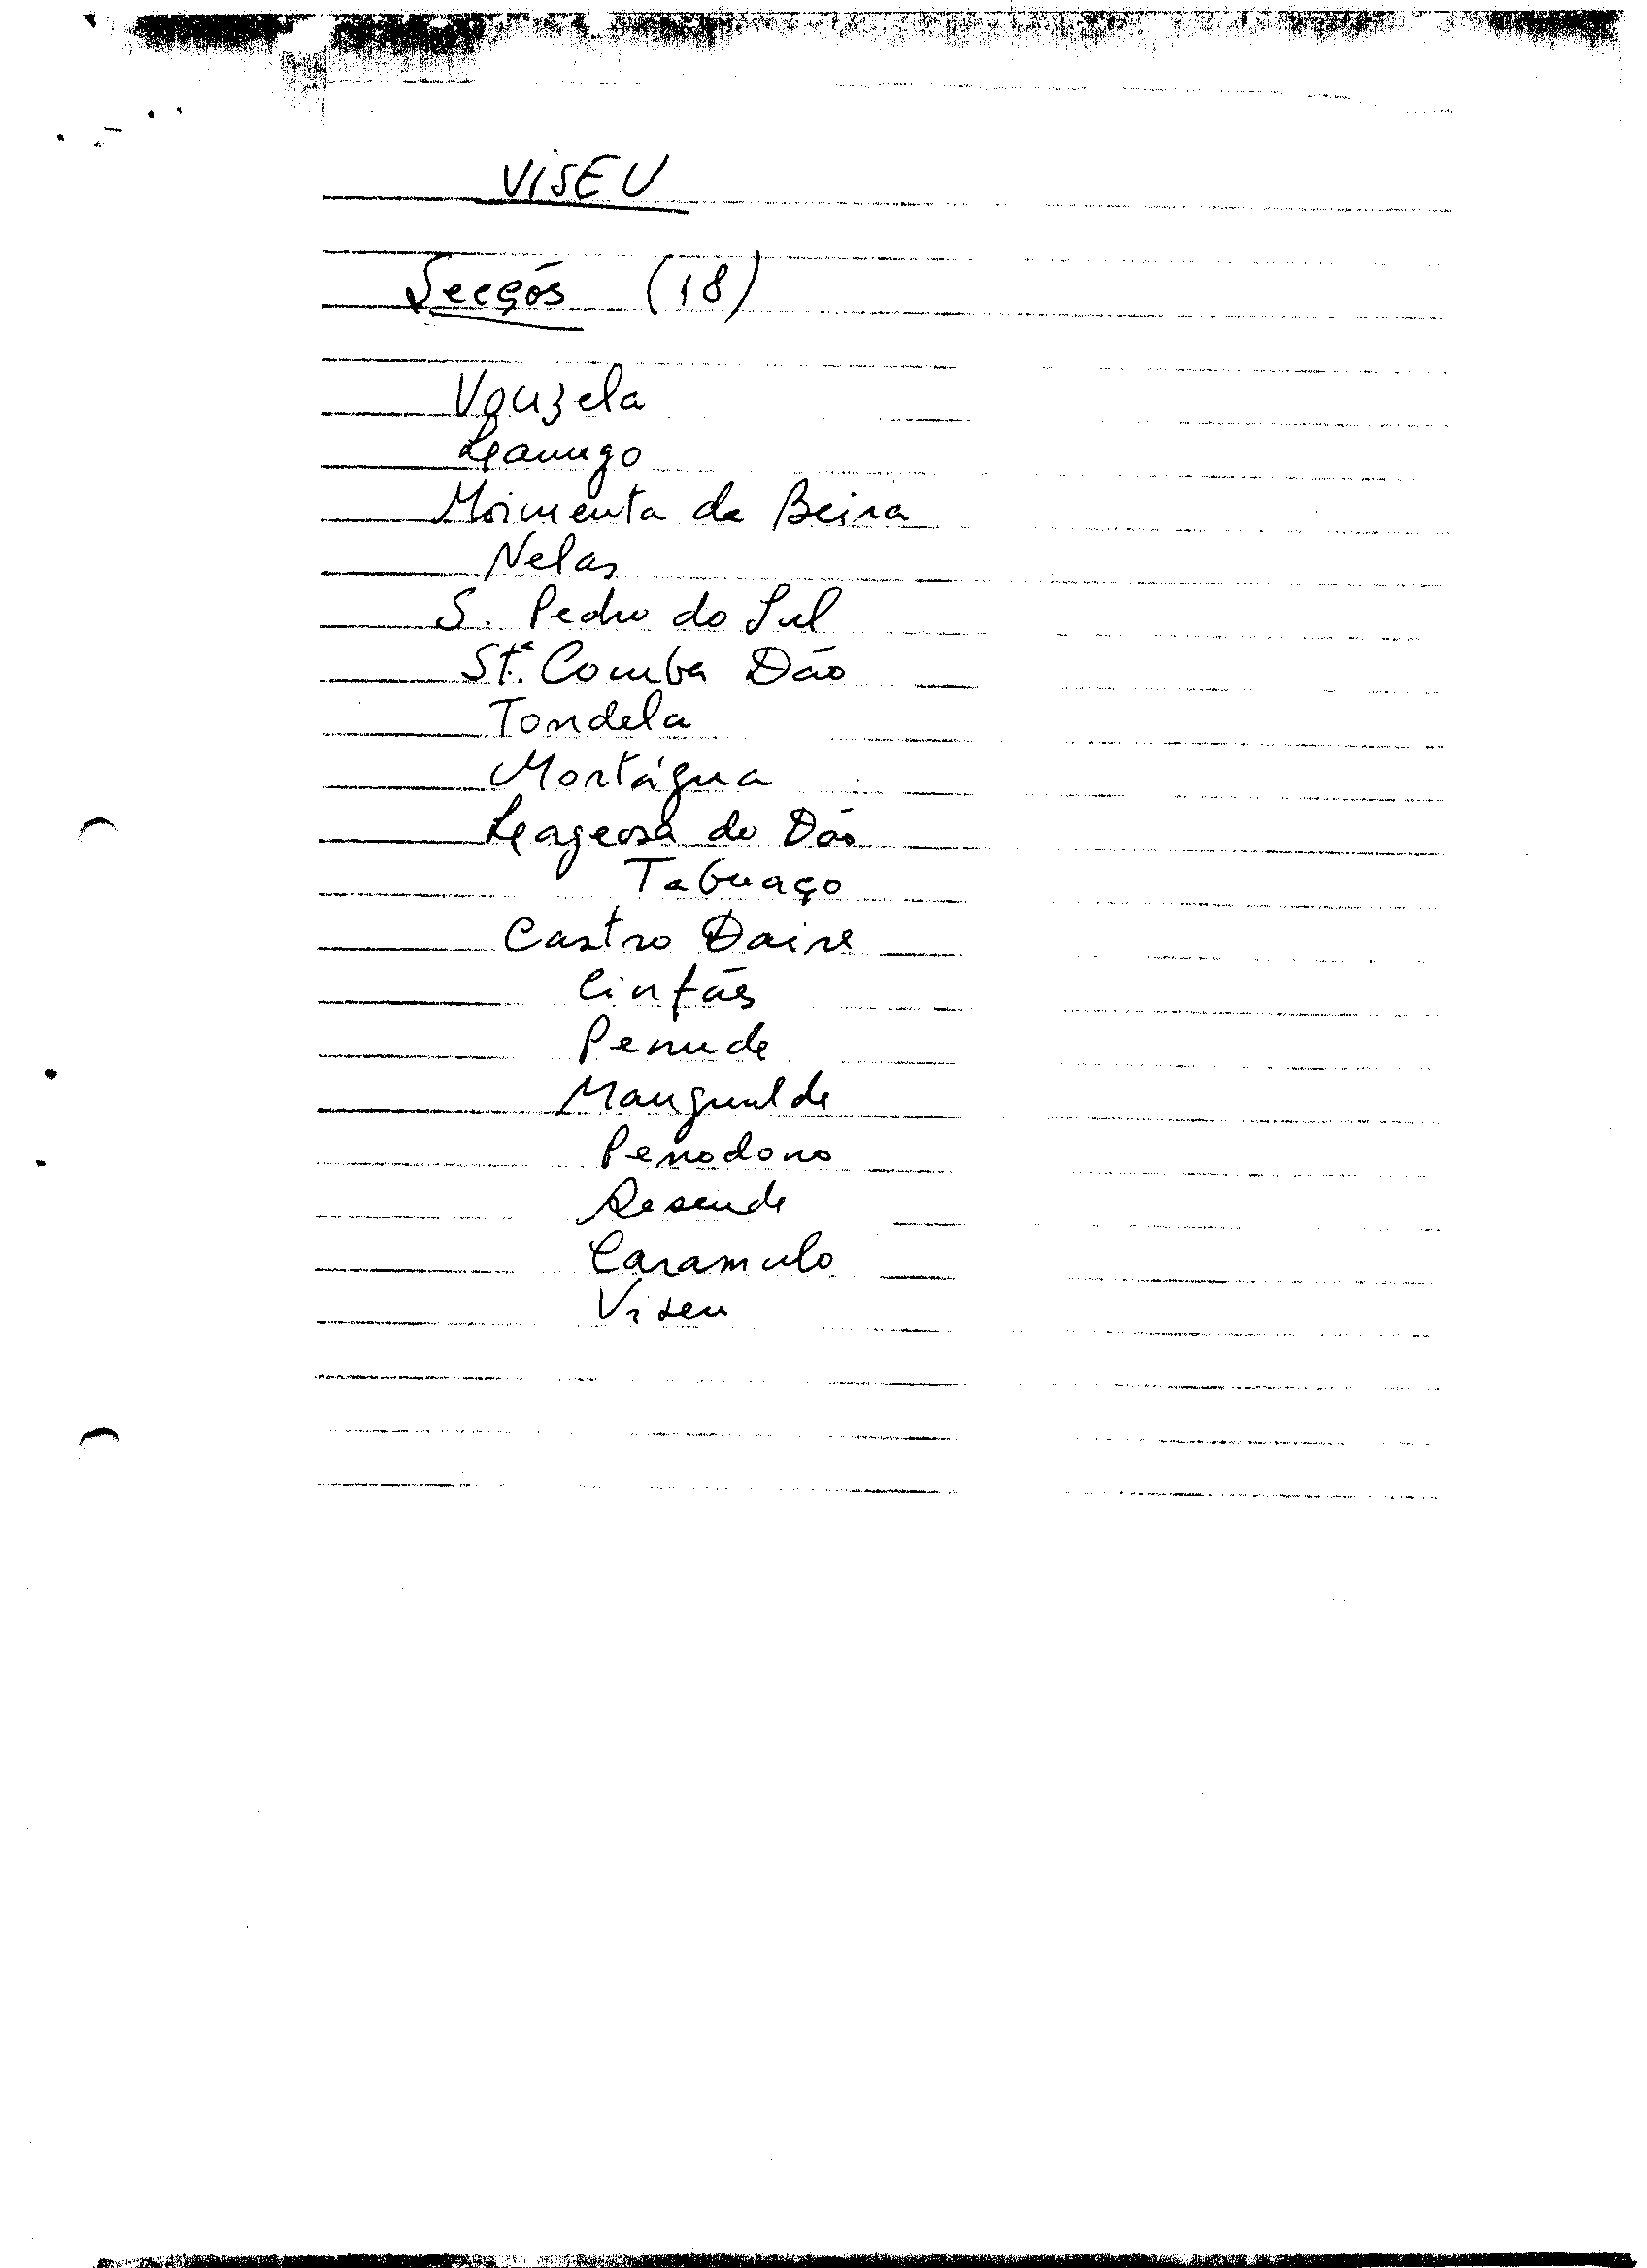 VISEU
Secções (18)
Vouzela
Lamego
Moimenta da Beira
Nelas
S. Pedro do Sul
Stª. Comba Dão
Tondela
Mortágua
Lageosa do Dão
Tabuaço
Castro Daire
Cinfães
Penude
Mangualde
Penodono
Resende
Caramulo
Viseu